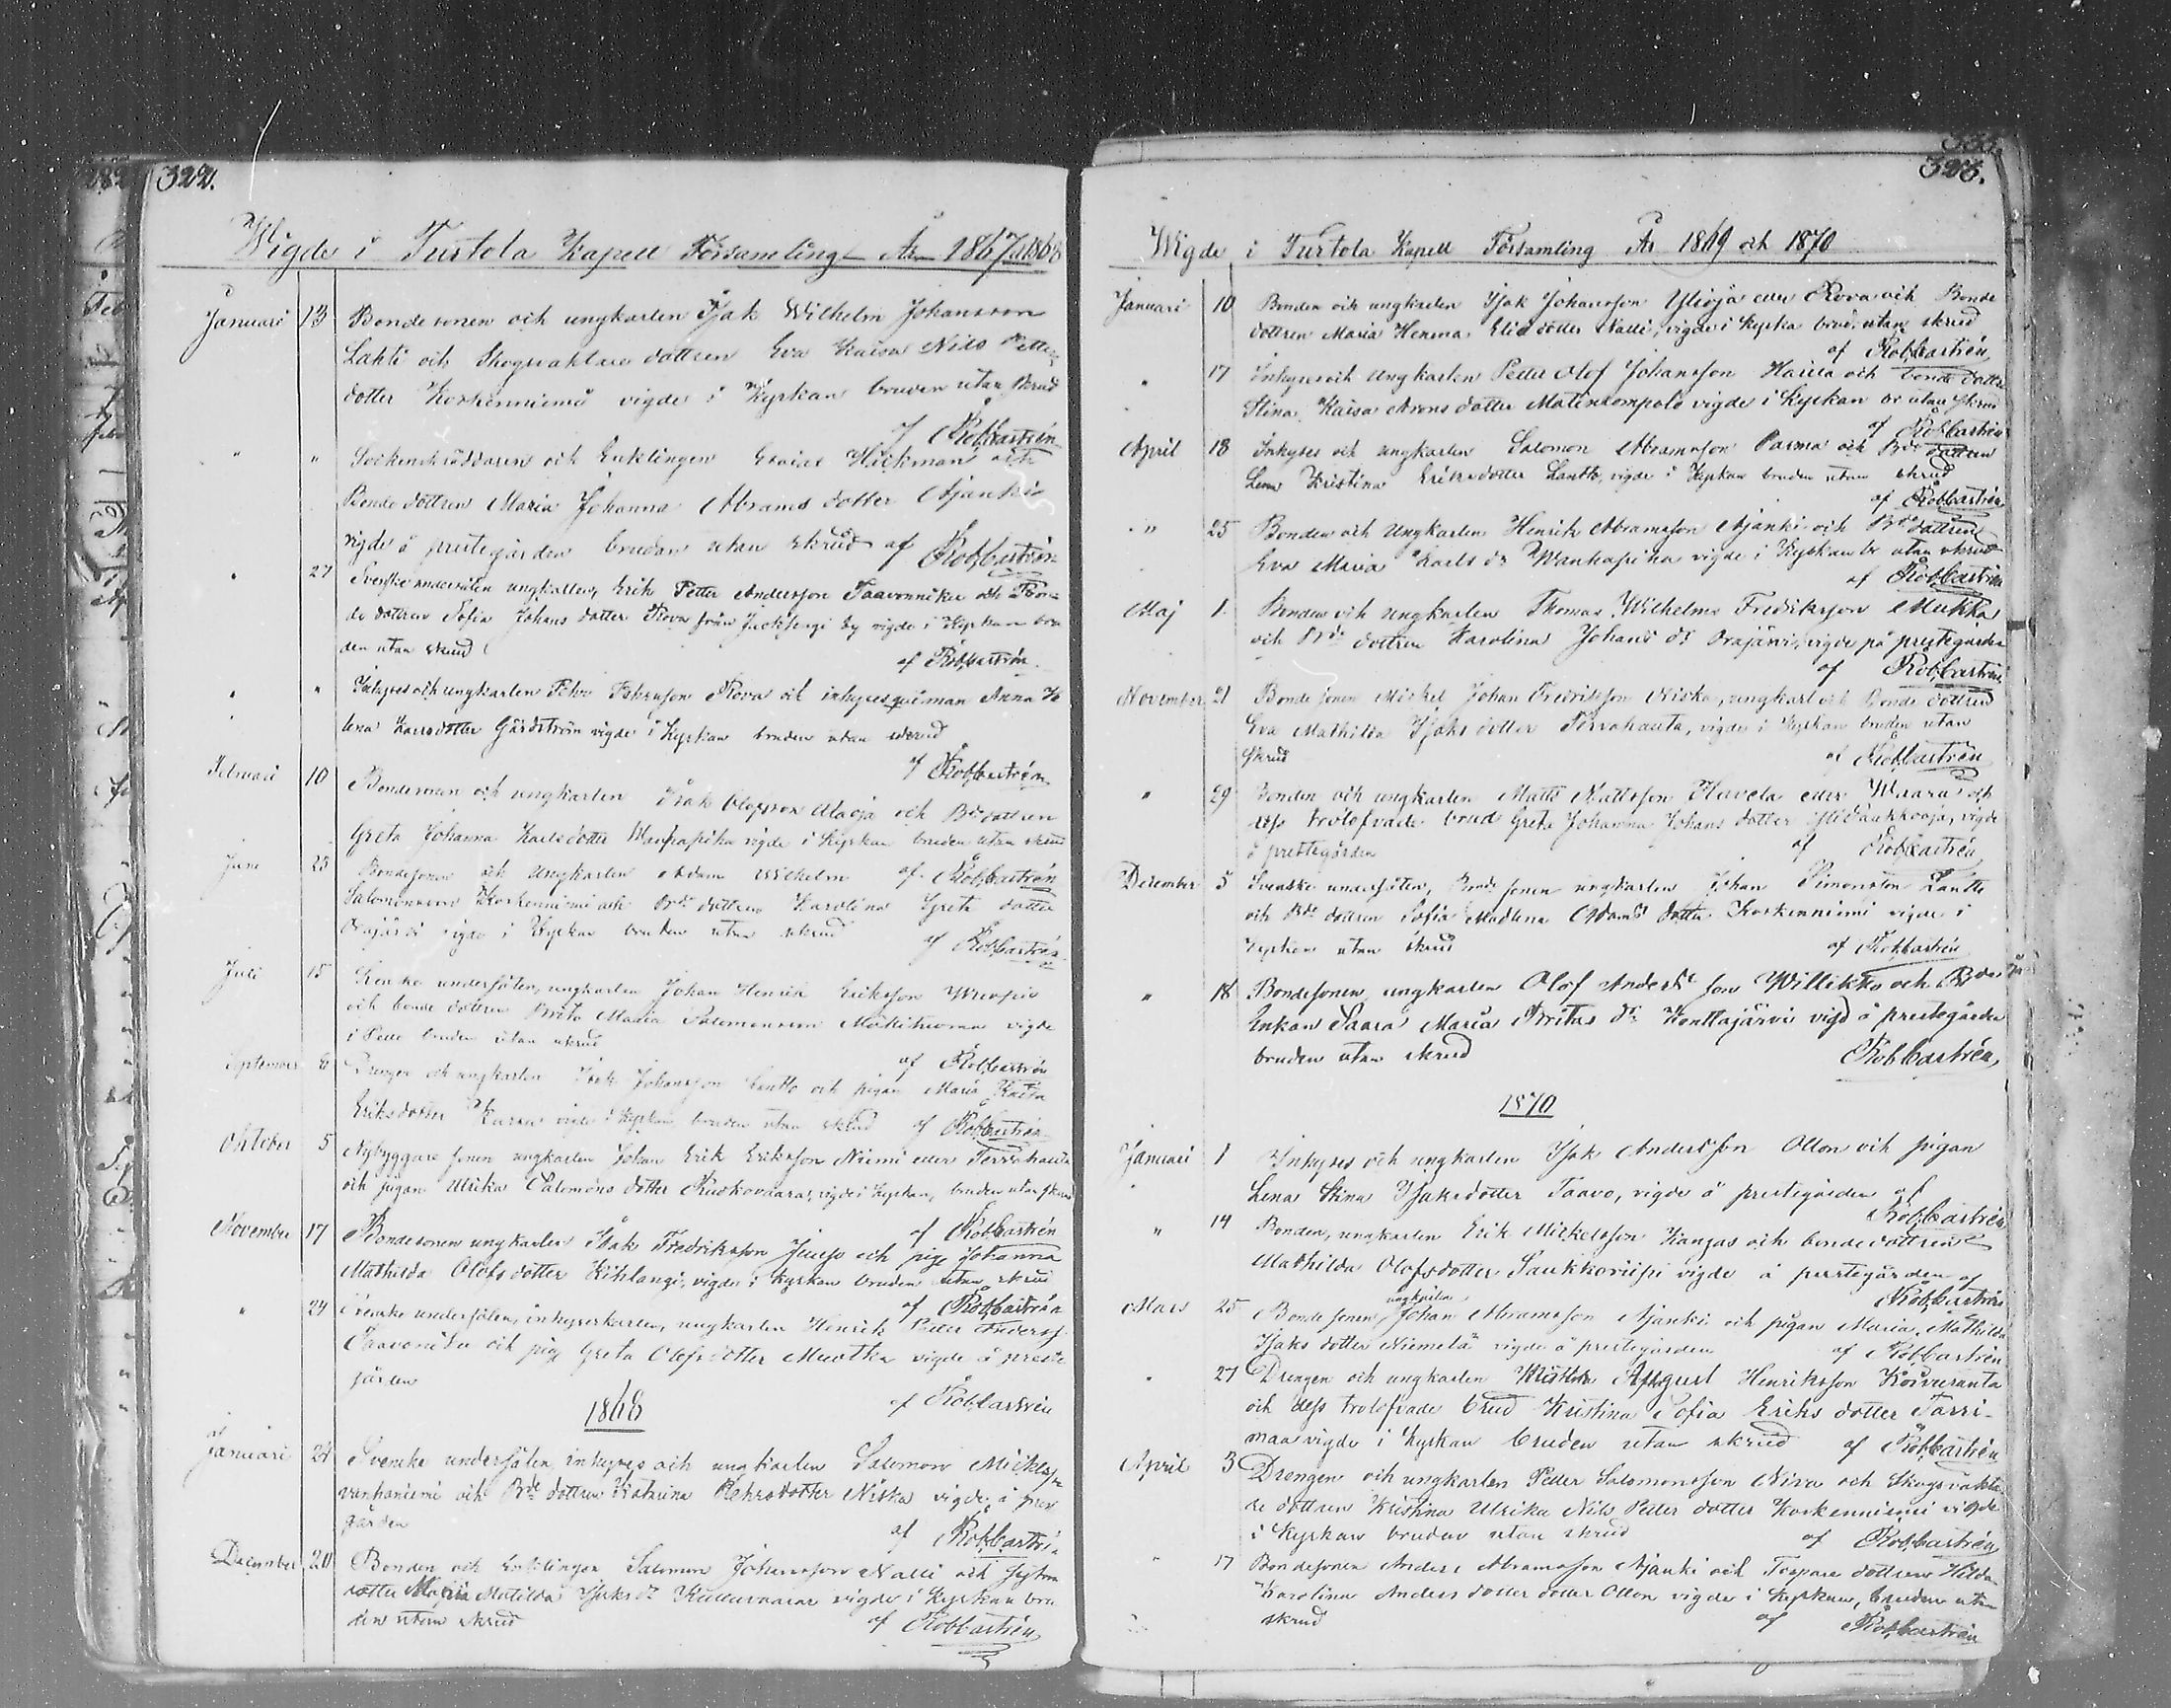 322.
Wigde i Turtola Kapell Församling År 1867, 1868
Januari 13 Bondesonen och ungkarlen Isak Wilhelm Johansson
Lahti och Skogvaktare dottren Eva Kaisa Nils Petters
dotter Koskenniemi vigde i Kyrkan bruden utan skrud
af Rob Castrén
" " Sockenskräddaren och Enklingen Esaias Hickman och
Bonde dottren Maria Johanna Abrams dotter Ajanki
vigde å prestegården bruden utan skrud af Rob Castrén
" 27 Svenske undersåten ungkarlen Erik Petter Andersson Taavonniku och Bon-
de dottren Sofia Johans dotter Rova från by vigde i Kyrkan bru
den utan skrud
af Rob Castrén
" " Inhyses och ungkarlen Rova och inhyses qvinnan Anna He
lena Lars dotter Gårdström vigde i Kyrkan bruden utan skrud
af Rob Castrén
Februari 10 Bondesonen och ungkarlen Isak Olofsson Alaoja och Bde dottren
Greta Johanna Karls dotter Wanhapiha vigde i Kyrkan bruden utan skrud
Juni 23 Bondesonen och Ungkarlen Adam Wilhelm af Rob Castrén
Salomonsson Koskenniemi och Bde dottren Karolina Greta dotter
Orajärvi vigde i Kyrkan bruden utan skrud
af Rob Castrén
Juli 15 Svenske undersåten, ungkarlen Johan Henrik Eriksson
och bonde dottren Brita Maria Salomonsson vigde
i Pello bruden utan skrud
af Rob Castrén
September 8 Drengen och ungkarlen Isak Johansson Lantto och pigan Maria Kaisa
Eriks dotter vigde i Kyrkan bruden utan skrud af Rob Castrén
Oktober 5 Nybyggare sonen ungkarlen Johan Erik Eriksson Niemi eller Tervahauta
och pigan Ulrika Salomons dotter Ruokovaara, vigde i Kyrkan, bruden utan skrud
af Rob Castrén
November 17 Bondesonen ungkarlen Isak Fredriksson Juuso och pig Johanna
Mathilda Olofs dotter Kihlangi, vigde i Kyrkan bruden utan skrud
af Rob Castrén
" 24 Svenske undersåten, inhyseskarlen, ungkarlen Henrik Petter Anderss.
Taavoniku och pig Greta Olofs dotter Muotka vigde å preste
gården
af Rob Castrén
1868
Januari 24 Svenske undersåten inhyses och ungkarlen Salomon Mickelss
vanhaniemi och Bde dottren Katarina Pehrs dotter Niska vigde å pres
gården
af Rob Castrén
December 20 Bonden och Enklingen Salomon Johansson Nalli och
dotter Maria Matilda Isaks dr Kullunvaara vigde i Kyrkan bru
den utan skrud
af Rob Castrén
323.
Wigde i Turtola Kapell Församling År 1869 och 1870
Januari 10 Bonden och ungkarlen Isak Johansson Ylioja eller Rova och Bonde
dottren Maria Henrika Elia dotter Nalli, vigde i kyrka brud. utan skrud
af Rob Castrén
" 17 Inhyses och Ungkarlen Petter Olof Johansson Haura och bonde dotter
Stina Kaisa Arons dotter Matinlompolo vigde i Kyrkan br utan skrud
af Rob Castrén
April 18 Inhyses och ungkarlen Salomon Abramsson Parma och Bde dottren
Lena Kristina Eriksdotter Lantto, vigde i Kyrkan bruden utan skrud
af Rob Castrén
" 25 Bonden och Ungkarlen Henrik Abramsson Ajanki och Bde dottren
Eva Maria Karls dr Wanhapiha vigde i Kyrkan br utan skrud
af Rob Castrén
Maj 1 Bonden och ungkarlen Thomas Wilhelm Fredriksson Mukka
och Bde dottren Karolina Johans dr Orajärvi, vigde på prestegården
af Rob Castrén
November 21 Bonde sonen Mickel Johan Fredriksson Niska, ungkarl och Bonde dottren
Eva Mathilda Isaks dotter Tervahauta, vigde i Kyrkan bruden utan
skrud
af Rob Castrén
" 29 Bonden och ungkarlen Matts Mattsson Havela eller Waara och
dess trolofvade brud Greta Johanna Johans dotter vigde
å prestegården
af Rob Castrén
December 5 Svenske undersåten, Bonde sonen ungkarlen Johan Simonsson Lantto
och Bde dottren Sofia Madlena Adams dotter Koskenniemi vigde i
kyrkan utan skrud
af Rob Castrén
" 18 Bondesonen ungkarlen Olof Anders son Willikko och Bonde
Enkan Saara Maria Britas dr Konttajärvi vigd å prestegården
bruden utan skrud
Rob Castrén
1870
Januari 1 Inhyses och ungkarlen Isak Andersson Ollon och pigan
Lena Stina Isaksdotter Taavo, vigde å prestegården af
Rob Castrén
" 14 Bonden, ungkarlen Erik Mickelsson Kangas och bondedottren
Mathilda Olofsdotter Saukkoriipi vigde å prestegården af
Rob Castrén
Mars 25 Bonde sonen, ungkarlen Johan Abramsson Ajanki och pigan Maria Mathilda
Isaks dotter Niemelä vigde å prestegården
af Rob Castrén
" 27 Drengen och ungkarlen August Henriksson Koivuranta
och dess trolofvade brud Kristina Sofia Eriks dotter Tarri-
maa vigde i kyrkan bruden utan skrud af Rob Castrén
April 3 Drengen och ungkarlen Petter Salomonsson Niva och Skogsvakta
re dottren Kristina Ulrika Nils Petter dotter Koskenniemi vigde
i Kyrkan bruden utan skrud
af Rob Castrén
" 17 Bondesonen Anders Abramsson Ajanki och Torpare dottren Hilda
Karolina Anders dotter dotter Ollon vigde i Kyrkan, bruden utan
skrud
af Rob Castrén